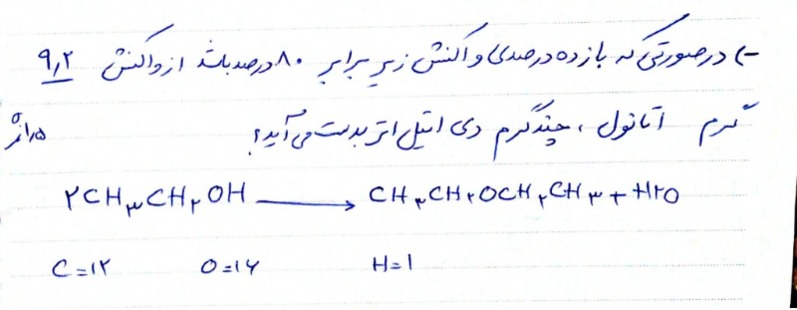 -) در صورتی که بازده درصدی واکنش زیر برابر ۸۰ درصد باشد از واکنش ۹٫۲
گرم اتانول، چندگرم دی اتیل اتر بدست می‌آید؟
۲CH۳CH۲OH → CH۳CH۲OCH۲CH۳ + H۲O
C=۱۲ O=۱۶ H=۱